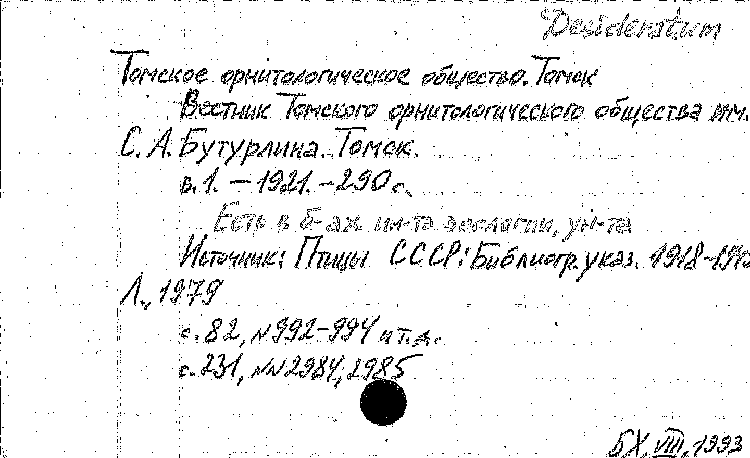 Desideratum
Томское орнитологическое общество. Томск
Вестник Томского орнитологического общества им.
С. А. Бутурлина. Томск.
в. 1. — 1921. – 290 с.
Есть в б-ах ин-та зоологии, ун-та
Источник: Птицы СССР: Библиогр. указ. 1918-
Л., 1979
с. 82, № 992-994 и т. д.
с. 231, №№ 2984, 2985
БХ, VIII, 1993